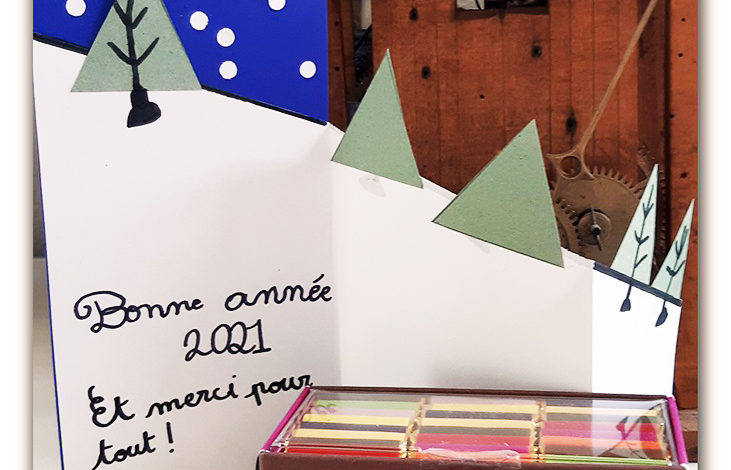 Bonne année
2021
Et merci pour
tout !